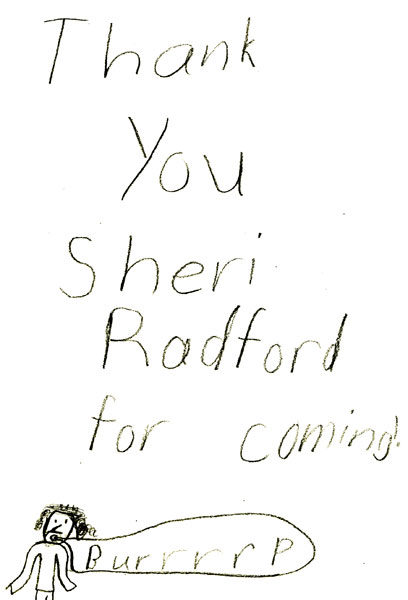 Thank
You
Sheri
Radford
for coming!
BurrrrrP